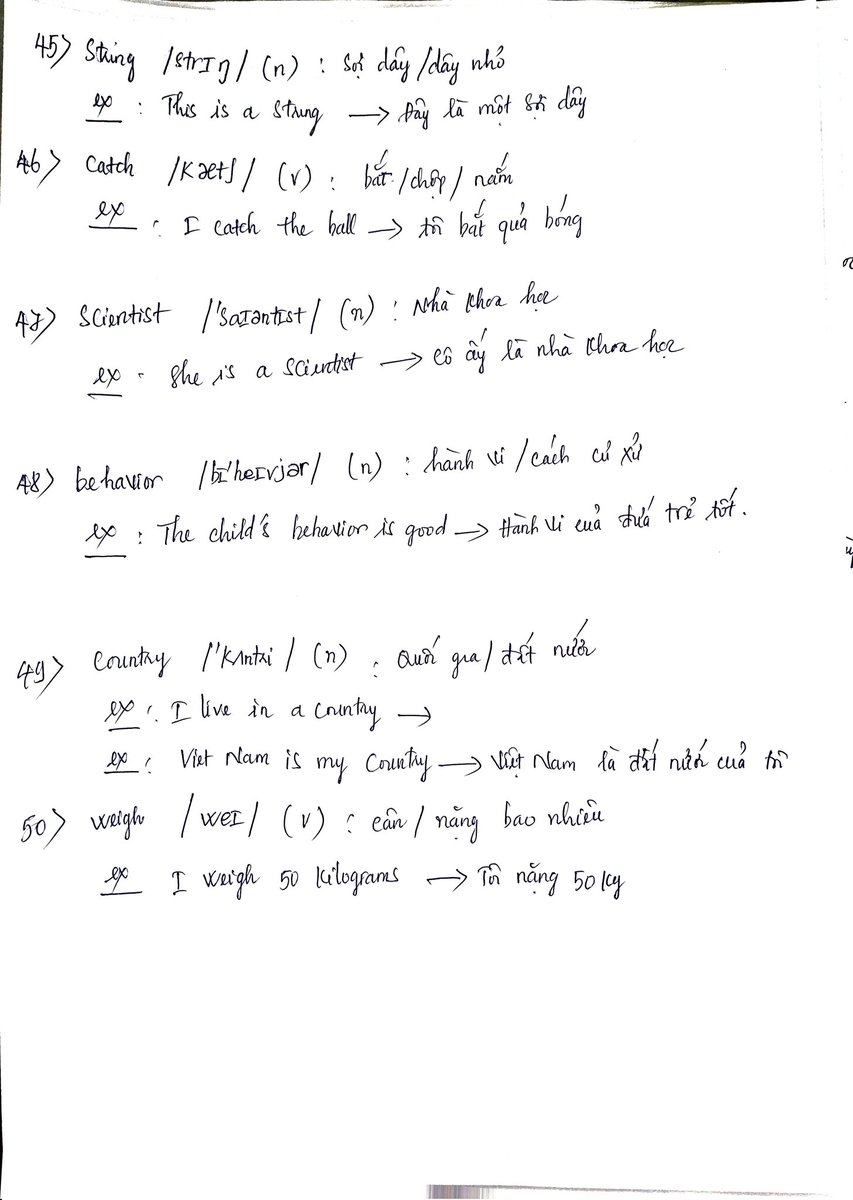 45) String /strɪŋ/ (n) : sợi dây /dây nhỏ
ex : This is a string → Đây là một sợi dây
46) Catch /kætʃ/ (v) : bắt /chộp / nắm
ex : I catch the ball → tôi bắt quả bóng
47) Scientist /'saɪəntɪst/ (n) : Nhà khoa học
ex : She is a scientist → Cô ấy là nhà khoa học
48) behavior /bɪ'heɪvjər/ (n) : hành vi /cách cư xử
ex : The child's behavior is good → Hành vi của đứa trẻ tốt.
49) Country /'kʌntri / (n) : Quốc gia/ đất nước
ex : I live in a country →
ex : Viet Nam is my country → Việt Nam là đất nước của tôi
50) weigh /weɪ/ (v) : cân / nặng bao nhiêu
ex I weigh 50 kilograms → Tôi nặng 50 kg